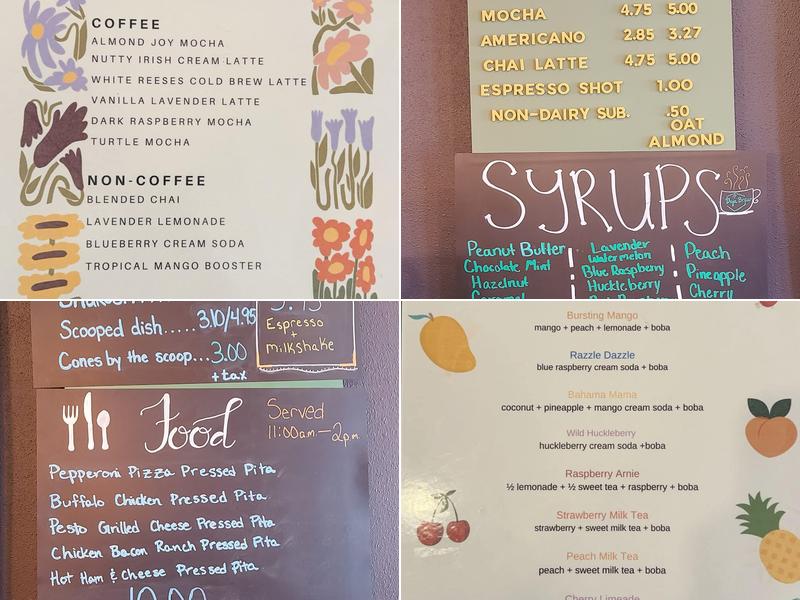 COFFEE
ALMOND JOY MOCHA
NUTTY IRISH CREAM LATTE
WHITE REESES COLD BREW LATTE
VANILLA LAVENDER LATTE
DARK RASPBERRY MOCHA
TURTLE MOCHA
NON-COFFEE
BLENDED CHAI
LAVENDER LEMONADE
BLUEBERRY CREAM SODA
TROPICAL MANGO BOOSTER
MOCHA 4.75 5.00
AMERICANO 2.85 3.27
CHAI LATTE 4.75 5.00
ESPRESSO SHOT 1.00
NON-DAIRY SUB. .50
OAT
ALMOND
SYRUPS
Peanut Butter Lavender Peach
Chocolate Mint Watermelon Pineapple
Hazelnut Blue Raspberry Cherry
Caramel Huckleberry
Scooped dish..... 3.10/4.95
Cones by the scoop... 3.00
+ tax
Espresso
+
milkshake
Food
Served
11:00am-2pm
Pepperoni Pizza Pressed Pita
Buffalo Chicken Pressed Pita
Pesto Grilled Cheese Pressed Pita
Chicken Bacon Ranch Pressed Pita
Hot Ham & Cheese Pressed Pita
Bursting Mango
mango + peach + lemonade + boba
Razzle Dazzle
blue raspberry cream soda + boba
Bahama Mama
coconut + pineapple + mango cream soda + boba
Wild Huckleberry
huckleberry cream soda +boba
Raspberry Arnie
½ lemonade + ½ sweet tea + raspberry + boba
Strawberry Milk Tea
strawberry + sweet milk tea + boba
Peach Milk Tea
peach + sweet milk tea + boba
Cherry Limeade